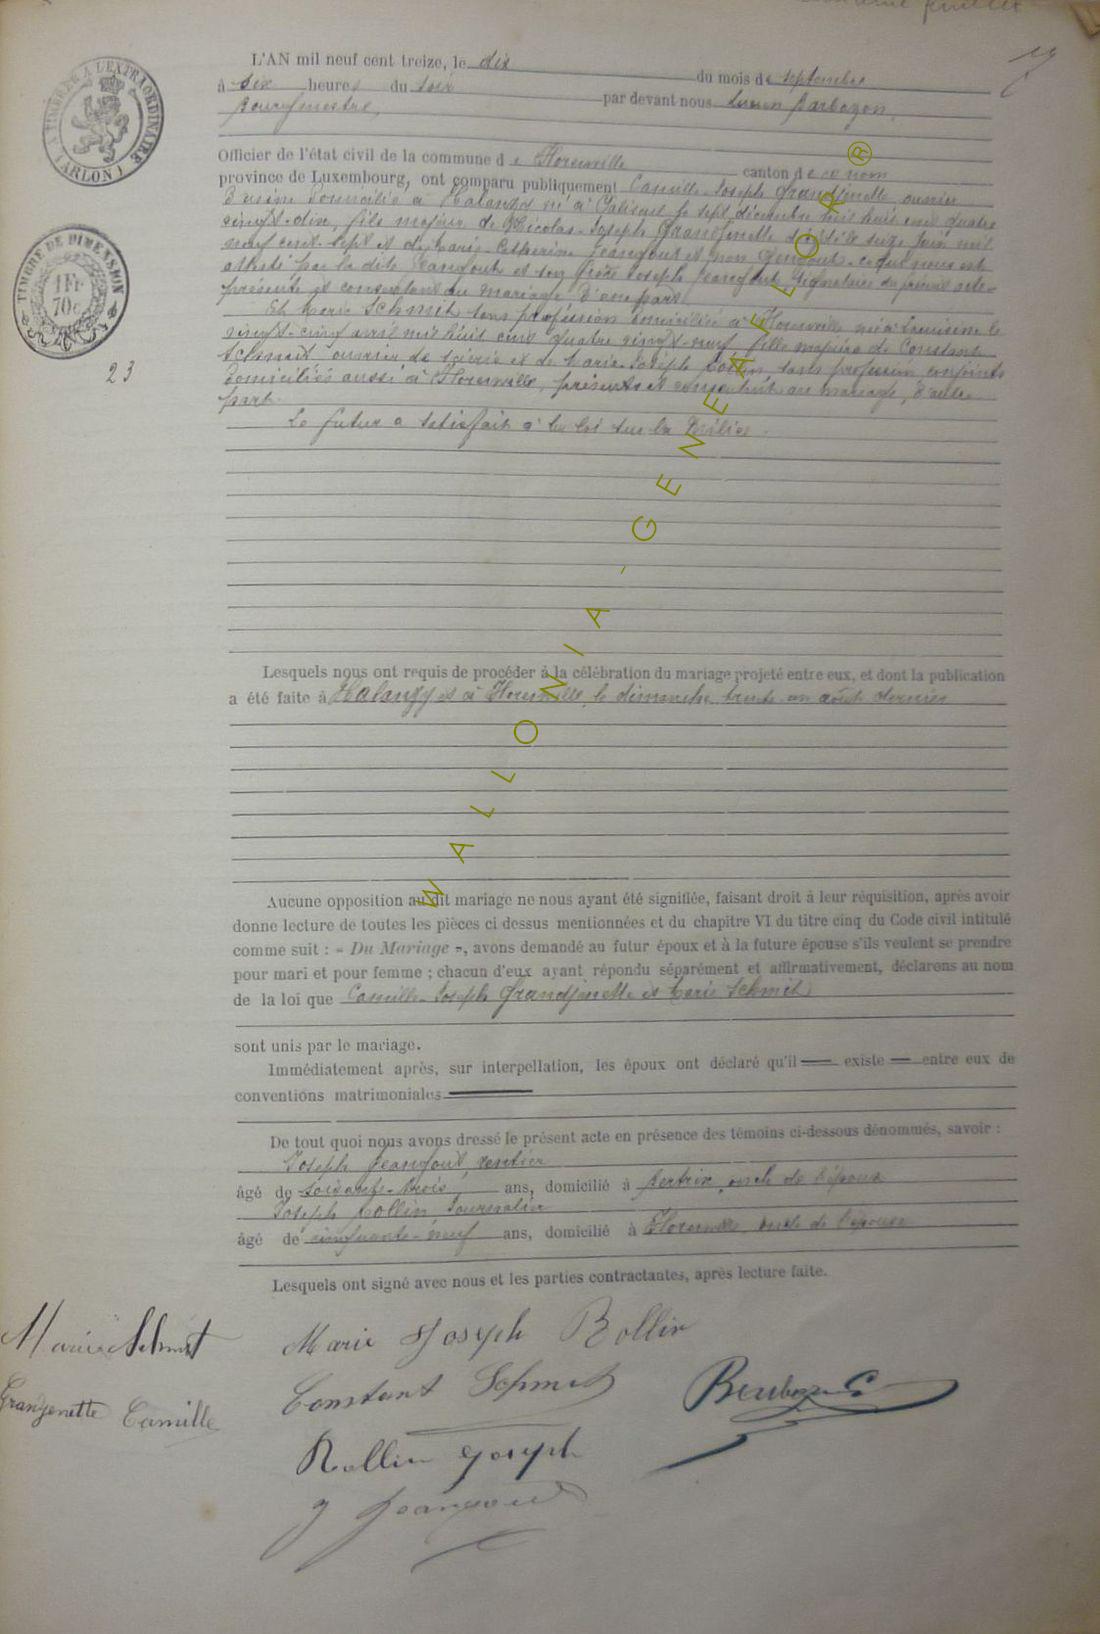 deuxième feuillet
19
TIMBRE A L'EXTRAORDINAIRE
(ARLON)
L'AN mil neuf cent treize, le dix du mois de septembre
à six heures du soir par devant nous Lucien Barbazon,
Bourgmestre,
Officier de l'état civil de la commune de Florenville canton de ce nom
province de Luxembourg, ont comparu publiquement Camille-Joseph Grandjenette, ouvrier
d'usine domicilié à Halanzy né à Izel le sept décembre mil huit cent quatre
vingt-dix, fils majeur de Nicolas-Joseph Grandjenette décédé le seize juin mil
neuf cent-sept et de Marie-Catherine Jeangout et non Gengout ce que nous est
attesté par la dite Jeangout et son frère Joseph Jeangout, signataires du présent acte
présente et consentant au mariage d'une part
TIMBRE DE DIMENSION
1Fr
70c
23
Et Marie Schmit sans profession domiciliée à Florenville née à le
vingt-cinq avril mil huit cent quatre vingt-neuf fille majeure de Constant
Schmit ouvrier de scierie et de Marie-Joseph Rollin sans profession conjoints
domiciliés aussi à Florenville, présents et consentant au mariage, d'autre
part.
Le futur a satisfait à la loi sur la Milice.
Lesquels nous ont requis de procéder à la célébration du mariage projeté entre eux, et dont la publication
a été faite à Halanzy et à Florenville le dimanche trente un août dernier
Aucune opposition au dit mariage ne nous ayant été signifiée, faisant droit à leur réquisition, après avoir
donne lecture de toutes les pièces ci dessus mentionnées et du chapitre VI du titre cinq du Code civil intitulé
comme suit : « Du Mariage », avons demandé au futur époux et à la future épouse s'ils veulent se prendre
pour mari et pour femme ; chacun d'eux ayant répondu séparément et affirmativement, déclarons au nom
de la loi que Camille-Joseph Grandjenette et Marie Schmit
sont unis par le mariage.
Immédiatement après, sur interpellation, les époux ont déclaré qu'il — existe — entre eux de
conventions matrimoniales
De tout quoi nous avons dressé le présent acte en présence des témoins ci-dessous dénommés, savoir :
Joseph Jeangout, rentier
âgé de soixante-trois ans, domicilié à Bertrix, oncle de l'époux
Joseph Rollin journalier
âgé de cinquante-neuf ans, domicilié à Florenville, oncle de l'épouse
Lesquels ont signé avec nous et les parties contractantes, après lecture faite.
Marie Schmit
Marie Joseph Rollin
Grandjenette Camille
Constant Schmit
Barbazon
Rollin Joseph
J Jeangout
WALLONIA-GENEAFELOR®